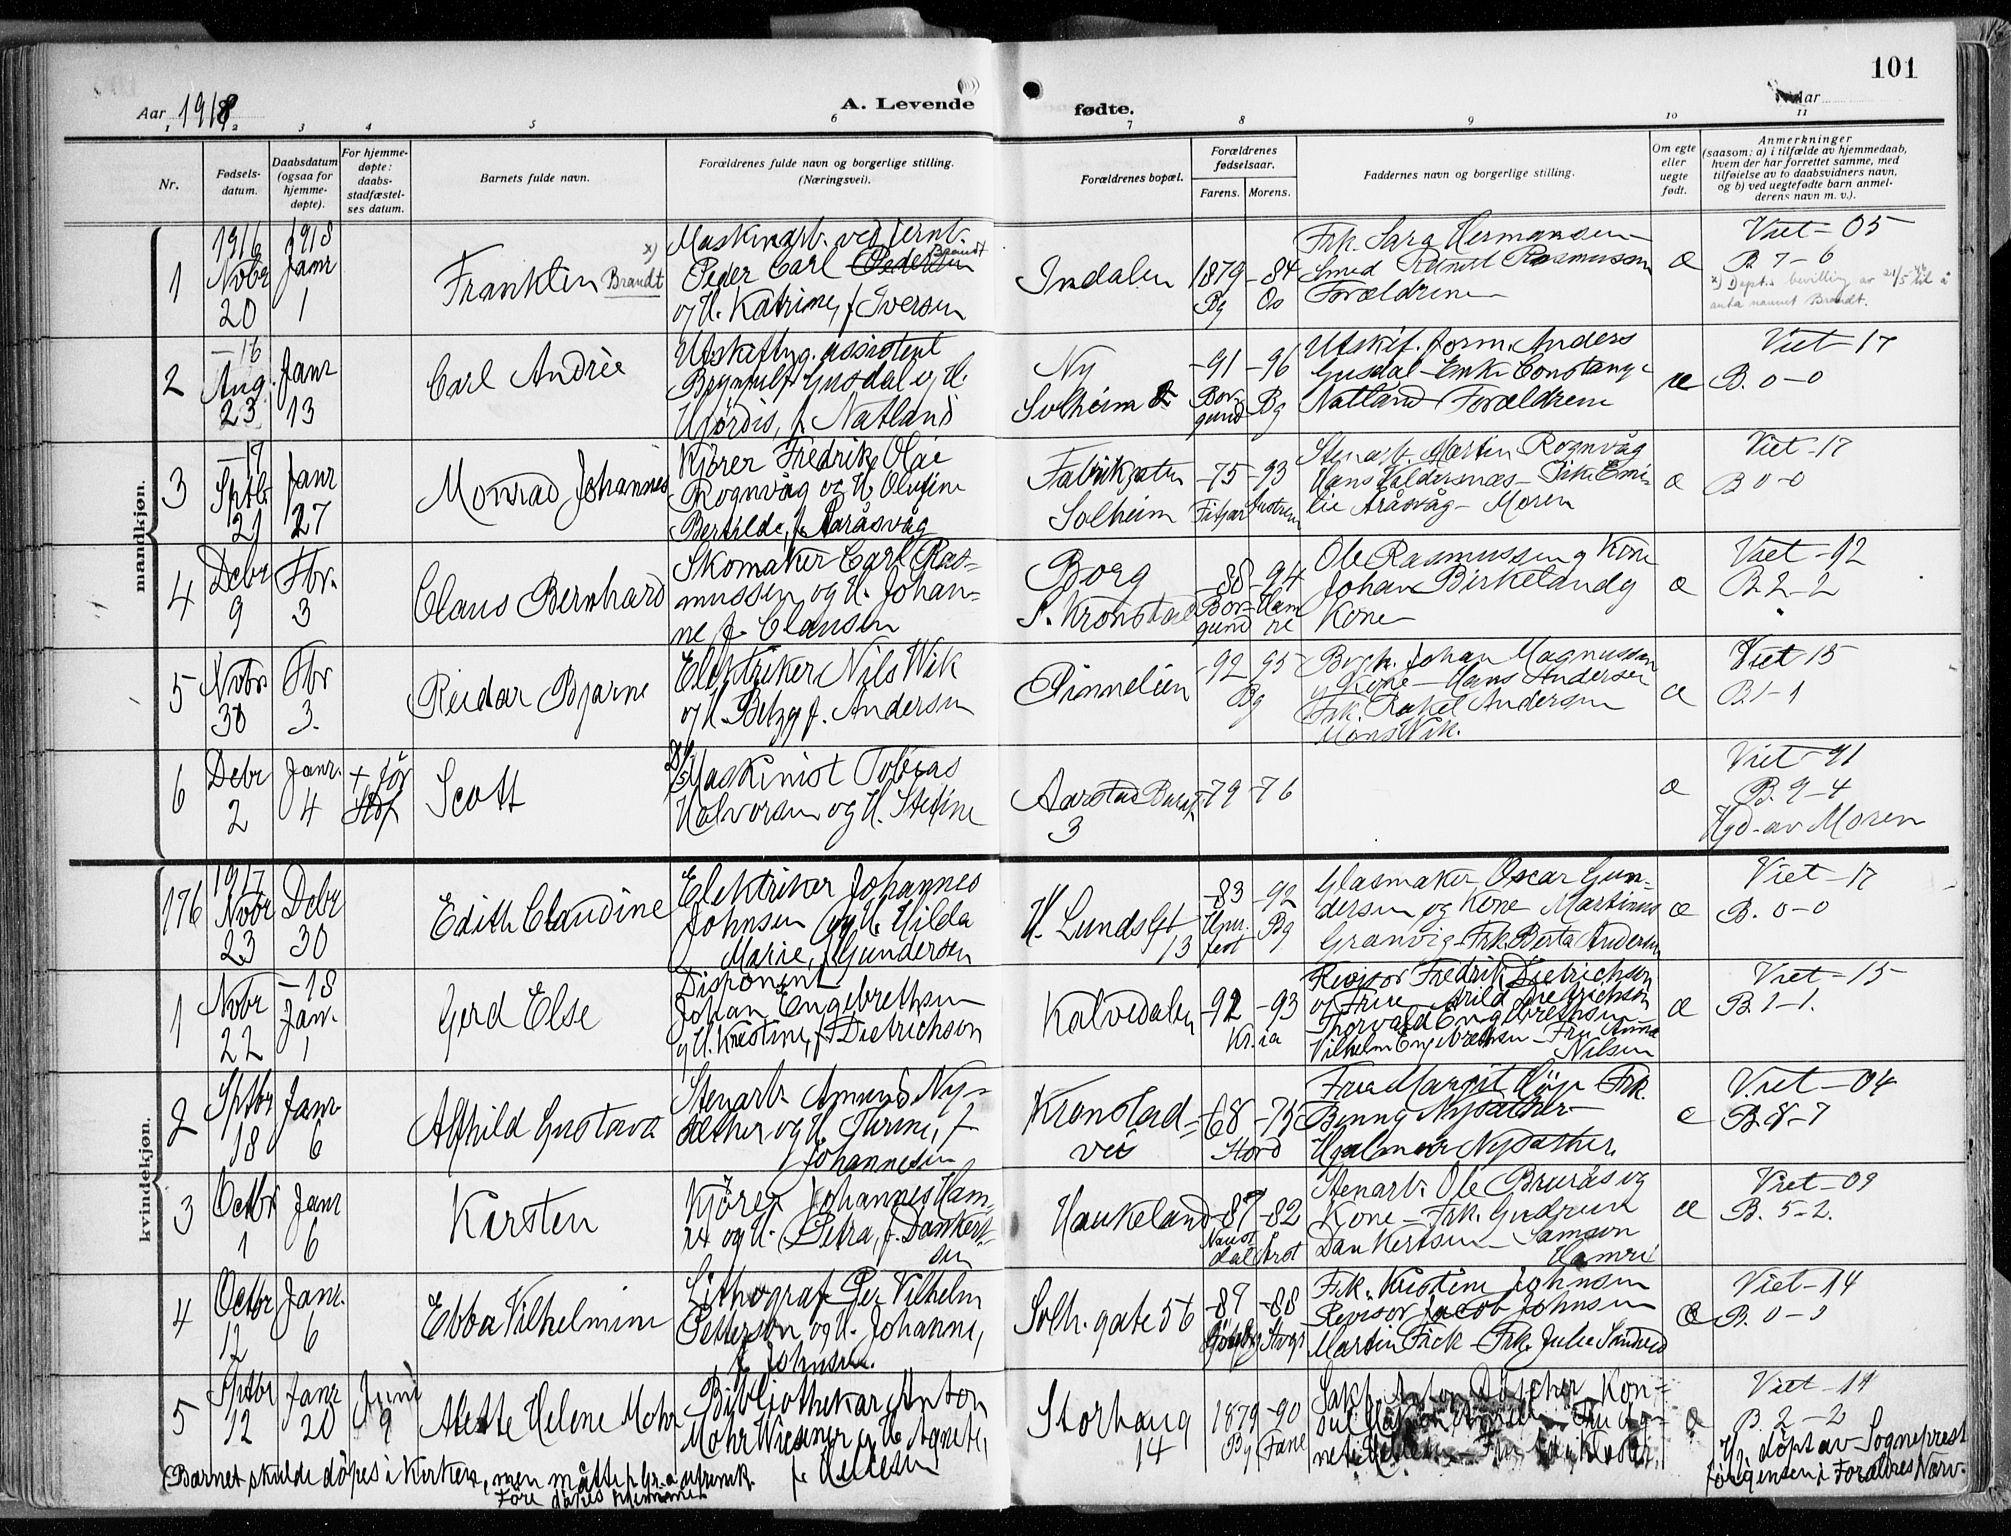 101
Aar 1918
A. Levende
fødte.
Aar
1 2 3 4 5 6 7 8 9 10 11
Nr.
Fødsels-
datum.
Daabsdatum
(ogsaa for
hjemme-
døpte).
For hjemme-
døpte:
daabs-
stadfæstel-
ses datum.
Barnets fulde navn.
Forældrenes fulde navn og borgerlige stilling.
(Næringsvei).
Forældrenes bopæl.
Forældrenes
fødselsaar.
Farens. Morens.
Faddernes navn og borgerlige stilling.
Om egte
eller
uegte
født.
Anmerkninger
(saasom: a) i tilfælde av hjemmedaab,
hvem der har forrettet samme, med
tilføielse av to daabsvidners navn,
og b) ved uegtefødte barn anmel-
derens navn m. v.).
mandkjøn.
1
1916
Novbr
20
1918
Janr
1
Franklin x) Brandt
Maskinarb. ved
Peder Carl Pedersen Brandt
og H. Katrine, f. Iversen
Indalen
1879 -84
Bg Os
Frk. Sara Hermansen
Smed Rasmussen
Forældrene
æ
Viet - 05
B. 7 - 6
x) Dept.s bevilling av 21/5 til å
anta navnet Brandt.
2
-16
Aug.
23
Janr
13
Carl Andrée
Utskiftng. assistent
Gusdal og H.
Hjördis, f. Natland
Ny
Solheim
-91 -96
Bor-
gund Bg
Utskif. form. Anders
Gusdal - Enke
Natland Forældrene
æ
Viet - 17
B. 0 - 0
3
-17
Sptbr
21
Janr
27
Monrad Johannes
Kjörer Fredrik Olai
Rognvåg og H. Olufine
Bertilde, f. Aaråsvåg
Fabrikgaten
Solheim
-75 -93
Fitjar Austrem
Stenarb. Martin Rognvåg
Hans Valdersnæs - Frk. Emi-
lie Aråsvåg - Moren
æ
Viet - 17
B 0 - 0
4
Debr
9
Fbr.
3
Claus Bernhard
Skomaker Carl Ras-
mussen og H. Johan-
ne f. Clausen
Borg
S. Kronstad
-88 -94
Bor-
gund Ham
re
Ole Rasmussen og Kone
Johan Birkeland og
Kone
æ
Viet - 12
B. 2 - 2
5
Novbr
30
Fbr
3.
Reidar Bjarne
Elektriker Nils Wik
og H. Betzy f. Andersen
Rinnelien
-92 95
Bg
Bogh. Johan Magnussen
og Kone - Hans Andersen
Frk. Rakel Andersen
Mons Wik.
æ
Viet 15
B. 1 - 1
6
Debr
2
Janr.
4
+ för
Stdf
Scott
Maskinist Tobias
Halvorsen og H. Stefine
Aarstad
3
-79 -76
æ
Viet - 91
B. 9 - 4
Hjd. av Moren
kvindekjøn.
176
1917
Novbr
23
Debr
30
Edith Claudine
Elektriker Johannes
Johnsen og H. Hilda
Marie, f. Gundersen
H. Lundsgt
13
-83 -92
Bg
Glasmaker Oscar Gun-
dersen og Kone Martinus
Granvig - Frk. Berta Andersen
æ
Viet - 17
B. 0 - 0
1
Novbr
22
-18
Jan.
1
Gerd Else
Disponent
Johan Engebrethsen
og H. Kristine, f. Dietrichson
Kalvedalen
-92 -93
Kr.ia
Revisor Fredrik Dietrichson
og Frue Arild Dietrichson
Thorvald Engebrethsen
Vilhelm Engebrethsen - Fru Anna
Nilsen
æ
Viet - 15
B. 1 - 1.
2
Sptbr
18
Janr
6
Alfhild Gustava
Stenarb. Amund Ny-
sæther og H. Thrine, f.
Johannesen
Kronstad-
vei
-68 -75
Stord
Fru Margit Frk.
Benny Nysæther
Hjalmar Nysæther
æ
Viet - 04
B. 8 - 7
3
Octbr
1
Janr
6
Kirsten
Kjörer Johannes Ham-
re og H. Petra, f. Dankert-
sen
Haukeland
-87 -82
Naust
dal Årst
Stenarb. Ole Bruås og
Kone - Frk. Gudrun
Dankertsen Samson
Hamre
æ
Viet - 09
B. 5 - 2.
4
Octbr
12
Janr.
6
Ebba Vilhelmine
Lithograf Per Vilhelm
Petterson og H. Johanne,
f. Johnsen.
Solh. gate 56
-87 -88
Frk. Kristine Johnsen
Revisor Jacob Johnsen
Martin Fick - Frk. Julie
æ
Viet - 14
B. 0 - 0
5
Sptbr
12
Janr
20
Juni
9
Alette Helene Mohr
Bibliothekar Anton
Mohr Wiesener og H. Agnete,
f.
Storhaug
14
1879 -90
Bg Fane
Sakf. Anton Kon-
sul Fru Ag-
æ
Viet - 14
B. 2 - 2
Hj. döpt av Sogneprest
Jörgensen i Forældres Nærv.
(Barnet skulde döpes i kirken, men måtte
döpes hjemme.